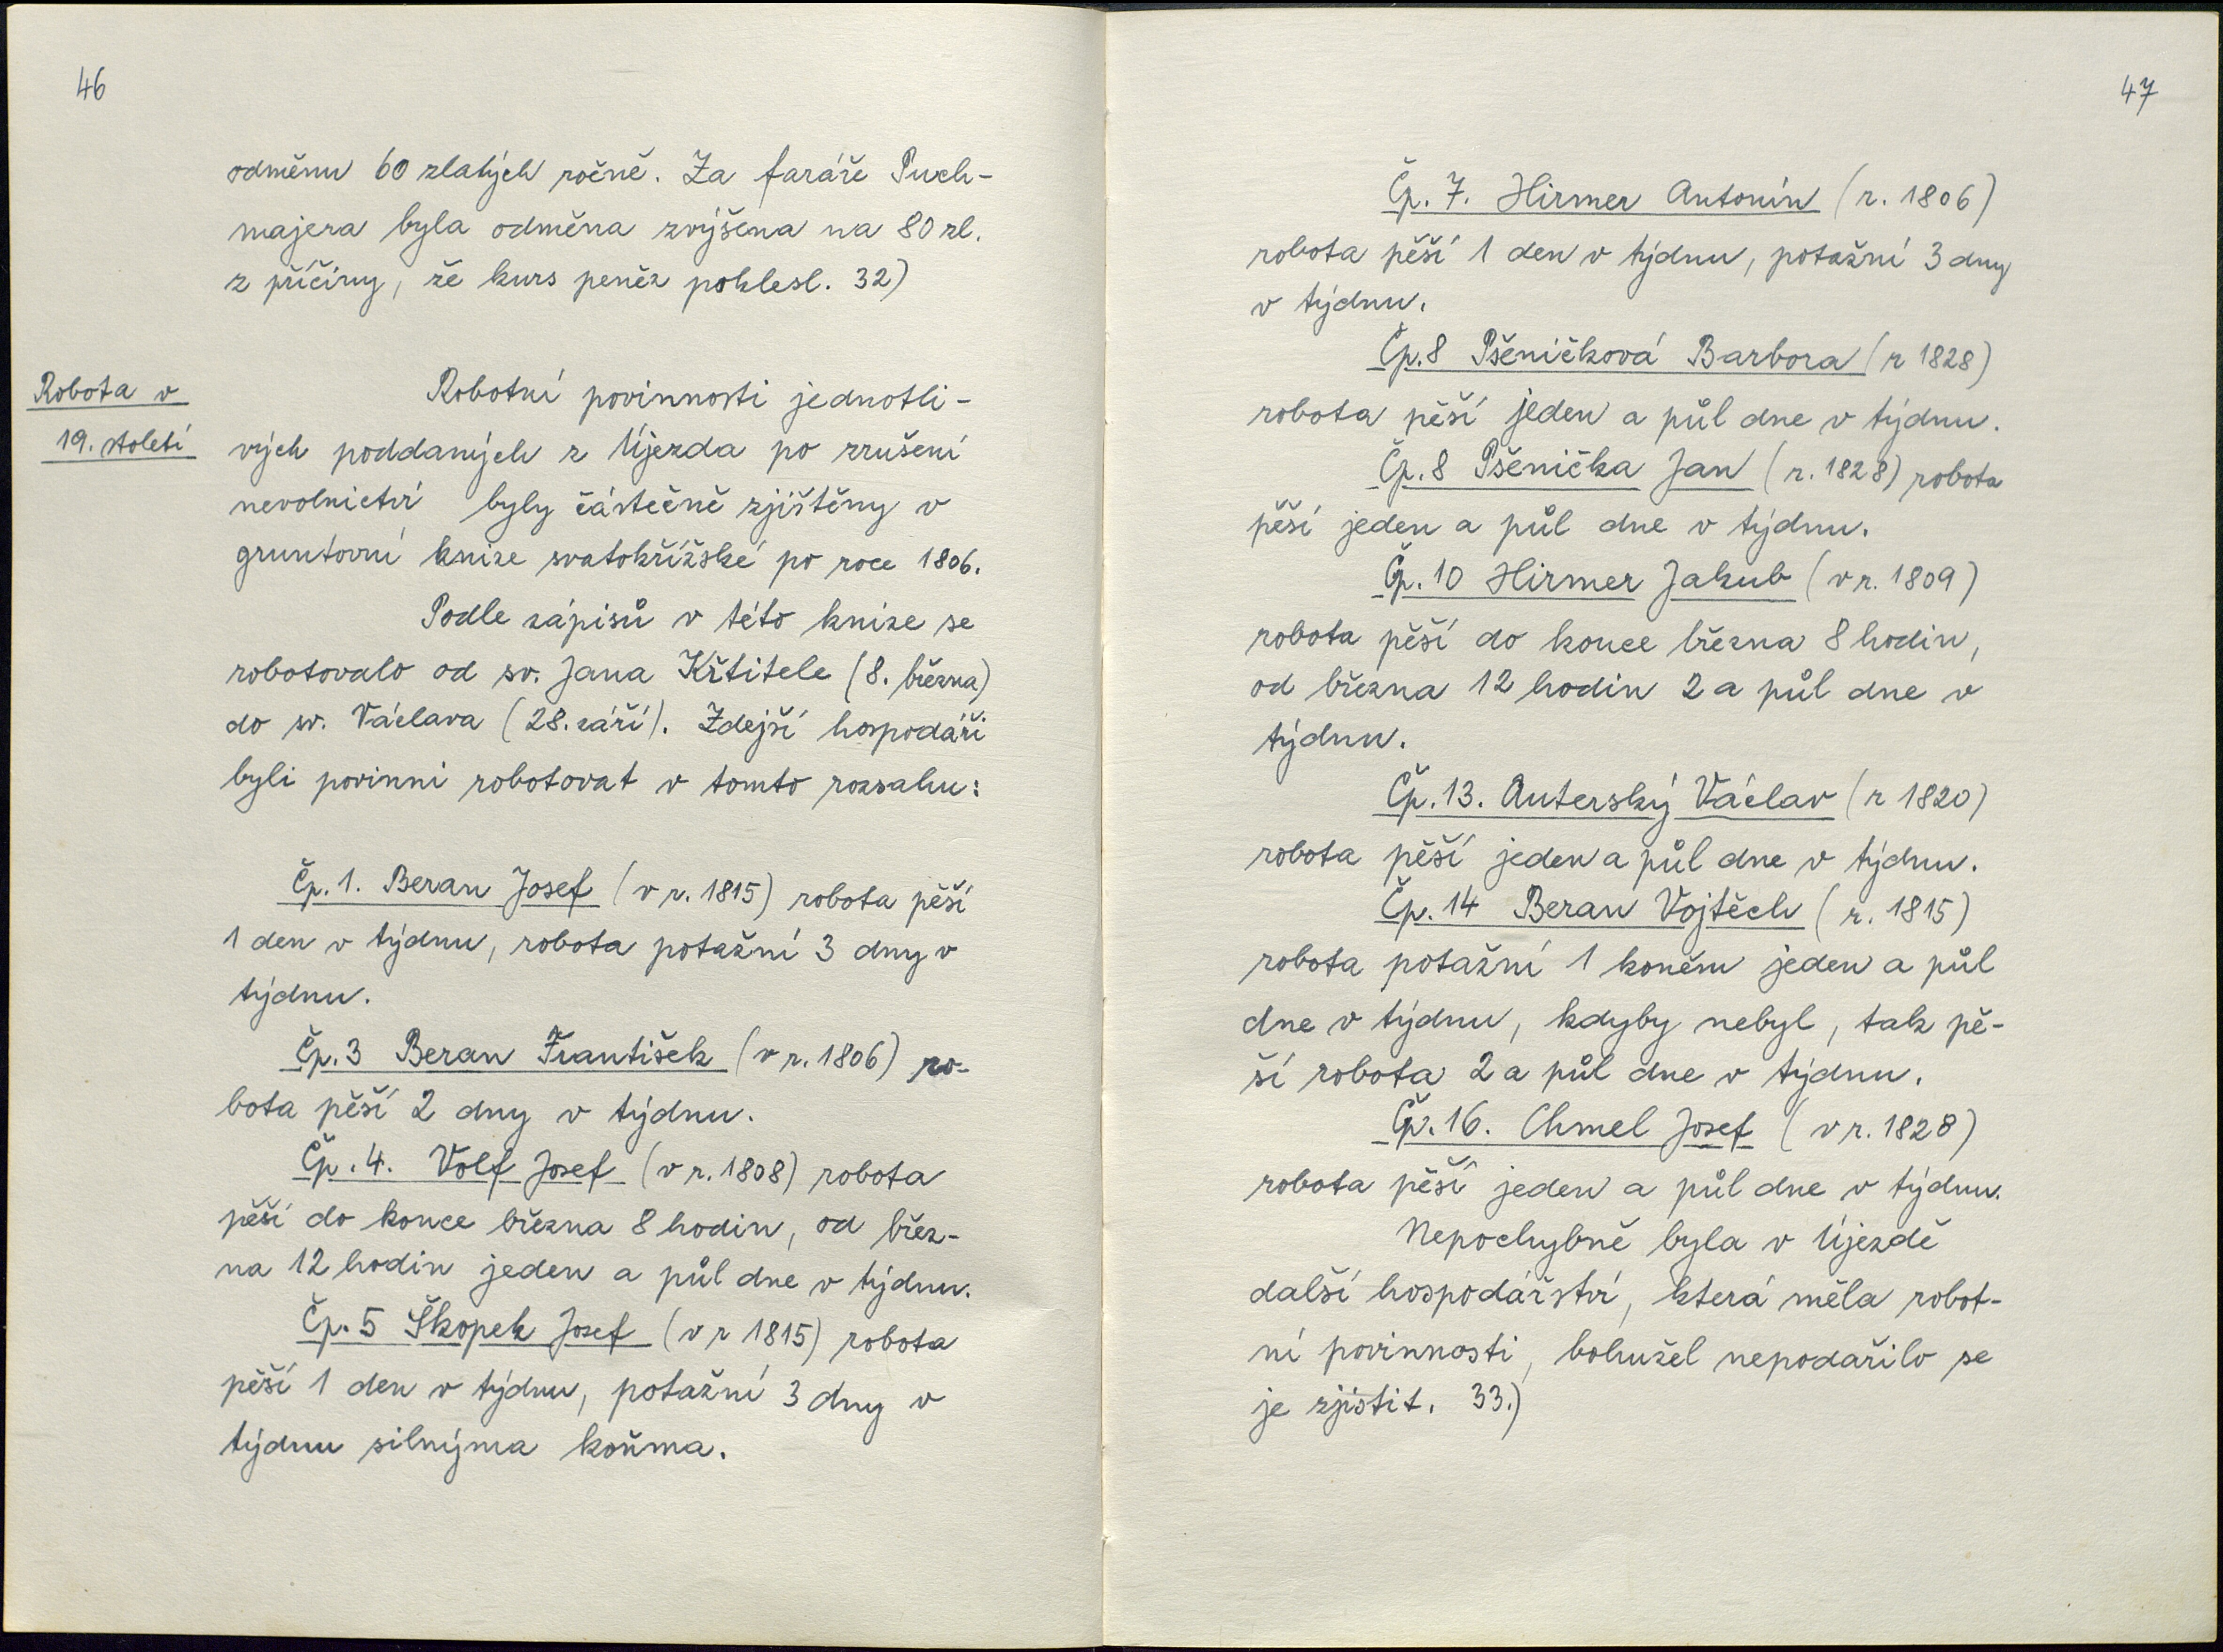 46
odměnu 60 zlatých ročně. Za faráře Puch-
majera byla odměna zvýšena na 80 zl.
z příčiny, že kurs peněz poklesl. 32)
Robota v
19. století
Robotní povinnosti jednotli-
vých poddaných z Újezda po zrušení
nevolnictví byly částečně zjištěny v
gruntovní knize svatokřížské po roce 1806.
Podle zápisů v této knize se
robotovalo od sv. Jana Křtitele (8. března)
do sv. Václava (28. září). Zdejší hospodáři
byli povinni robotovat v tomto rozsahu:
Čp. 1. Beran Josef (v r. 1815) robota pěší
1 den v týdnu, robota potažní 3 dny v
týdnu.
Čp. 3 Beran František (v r. 1806) ro-
bota pěší 2 dny v týdnu.
Čp. 4. Volf Josef (v r. 1808) robota
pěší do konce března 8 hodin, od břez-
na 12 hodin jeden a půl dne v týdnu.
Čp. 5 Škopek Josef (v r 1815) robota
pěší 1 den v týdnu, potažní 3 dny v
týdnu silnýma koňma.
47
Čp. 7. Hirmer Antonín (r. 1806)
robota pěší 1 den v týdnu, potažní 3 dny
v týdnu.
Čp. 8 Pšeničková Barbora (r 1828)
robota pěší jeden a půl dne v týdnu.
Čp. 8 Pšenička Jan (r. 1828) robota
pěší jeden a půl dne v týdnu.
Čp. 10 Hirmer Jakub (v r. 1809)
robota pěší do konce března 8 hodin,
od března 12 hodin 2 a půl dne v
týdnu.
Čp. 13. Auterský Václav (r 1820)
robota pěší jeden a půl dne v týdnu.
Čp. 14 Beran Vojtěch (r. 1815)
robota potažní 1 koněm jeden a půl
dne v týdnu, kdyby nebyl, tak pě-
ší robota 2 a půl dne v týdnu.
Čp. 16. Chmel Josef (v r. 1828)
robota pěší jeden a půl dne v týdnu.
Nepochybně byla v Újezdě
další hospodářství, která měla robot-
ní povinnosti, bohužel nepodařilo se
je zjistit. 33.)